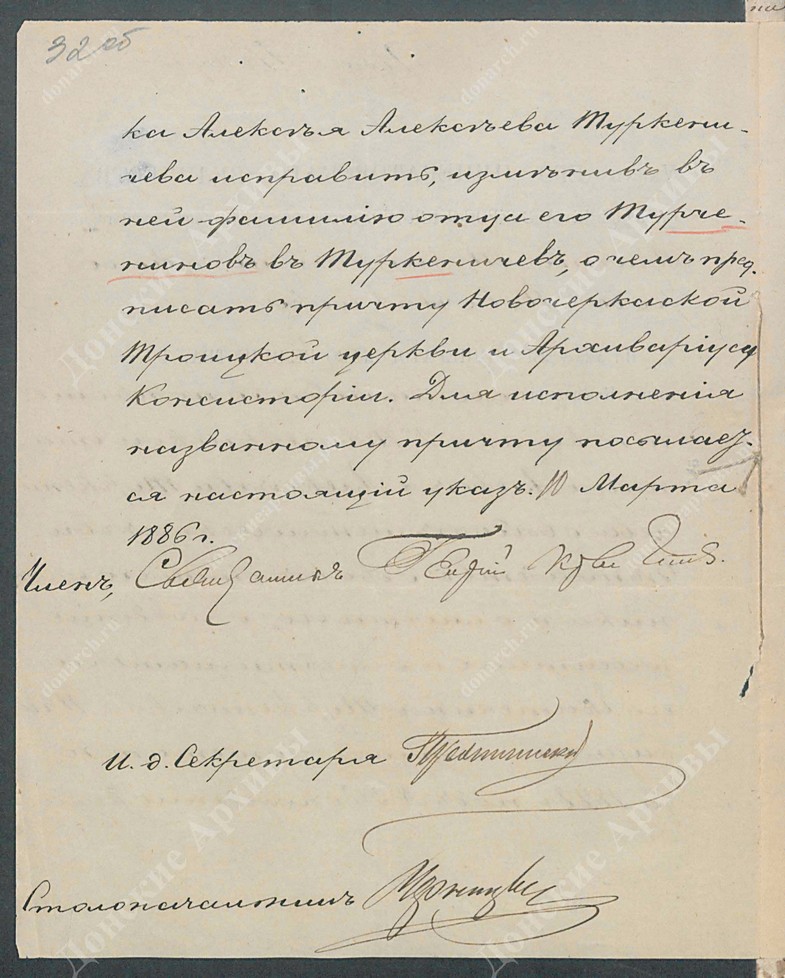 32 об
ка Алексѣя Алексѣева Туркени-
чева исправить, измѣнивъ въ
ней фамилію отца его Турче-
ниновъ въ Туркеничевъ, о чемъ пред-
писать причту Новочеркаской
Троицкой церкви и Архиваріусу
Консисторіи. Для исполненія
названному причту посылает-
ся настоящій указъ. 10 Марта
1886 г.
Членъ, Священникъ
И. д. Секретаря
Столоначальникъ
Донские Архивы
donarch.ru